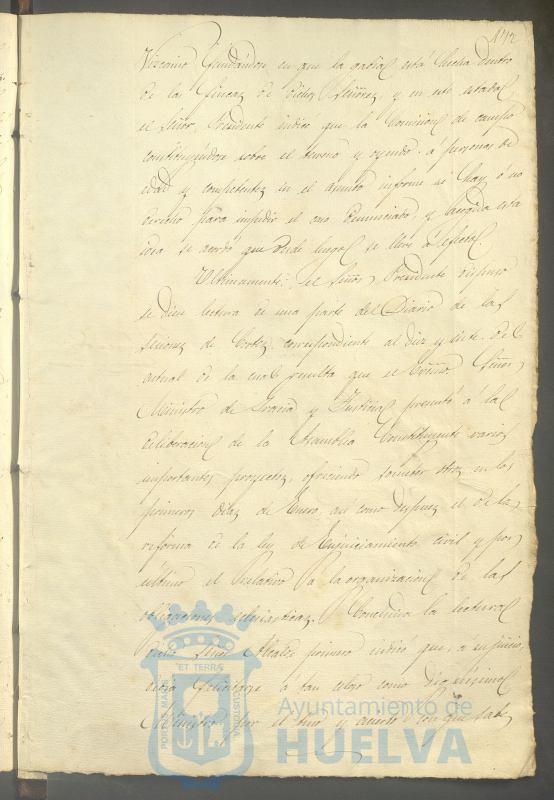 142
Vizcaino fundándose en que la pasada está hecha dentro
de la finca de dichos Señores, y en este estado
el Señor Presidente indicó que la Comision de campo
constituyéndose sobre el terreno y oyendo á personas de
edad y competentes en el asunto informe si hay ó no
derecho para impedir el uso denunciado y acogida esta
idea se acordó que desde luego se lleve á efecto.
Ultimamente: el Señor Presidente dispuso
se diese lectura de una parte del Diario de las
Sesiones de Cortes correspondiente al diez y siete del
actual de la cual resulta que el Señor
Ministro de Gracia y Justicia presentó á las
deliberaciones de la Asamblea Constituyente varios
importantes proyectos, ofreciendo someter otros en los
primeros dias de Enero asi como despues el de la
reforma de la ley de Enjuiciamiento civil y por
último el relativo á la organizacion de las
obligaciones eclesiasticas. Concluida la lectura
dicho Señor Alcalde primero indicó que, á su juicio,
debia felicitarse á tan celoso como dignísimo
Ministro por el tino y acierto con que sabe
PORTUS MARIS ET TERRAE CUSTODIA
Ayuntamiento de
HUELVA